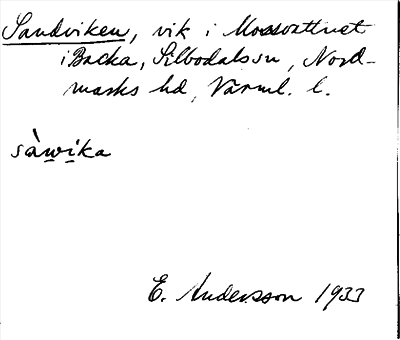 Sandviken, vik i Mossvattnet
i Backa, Silbodalssn, Nord-
marks hd, Värml. l.
sàwika
E. Andersson 1933